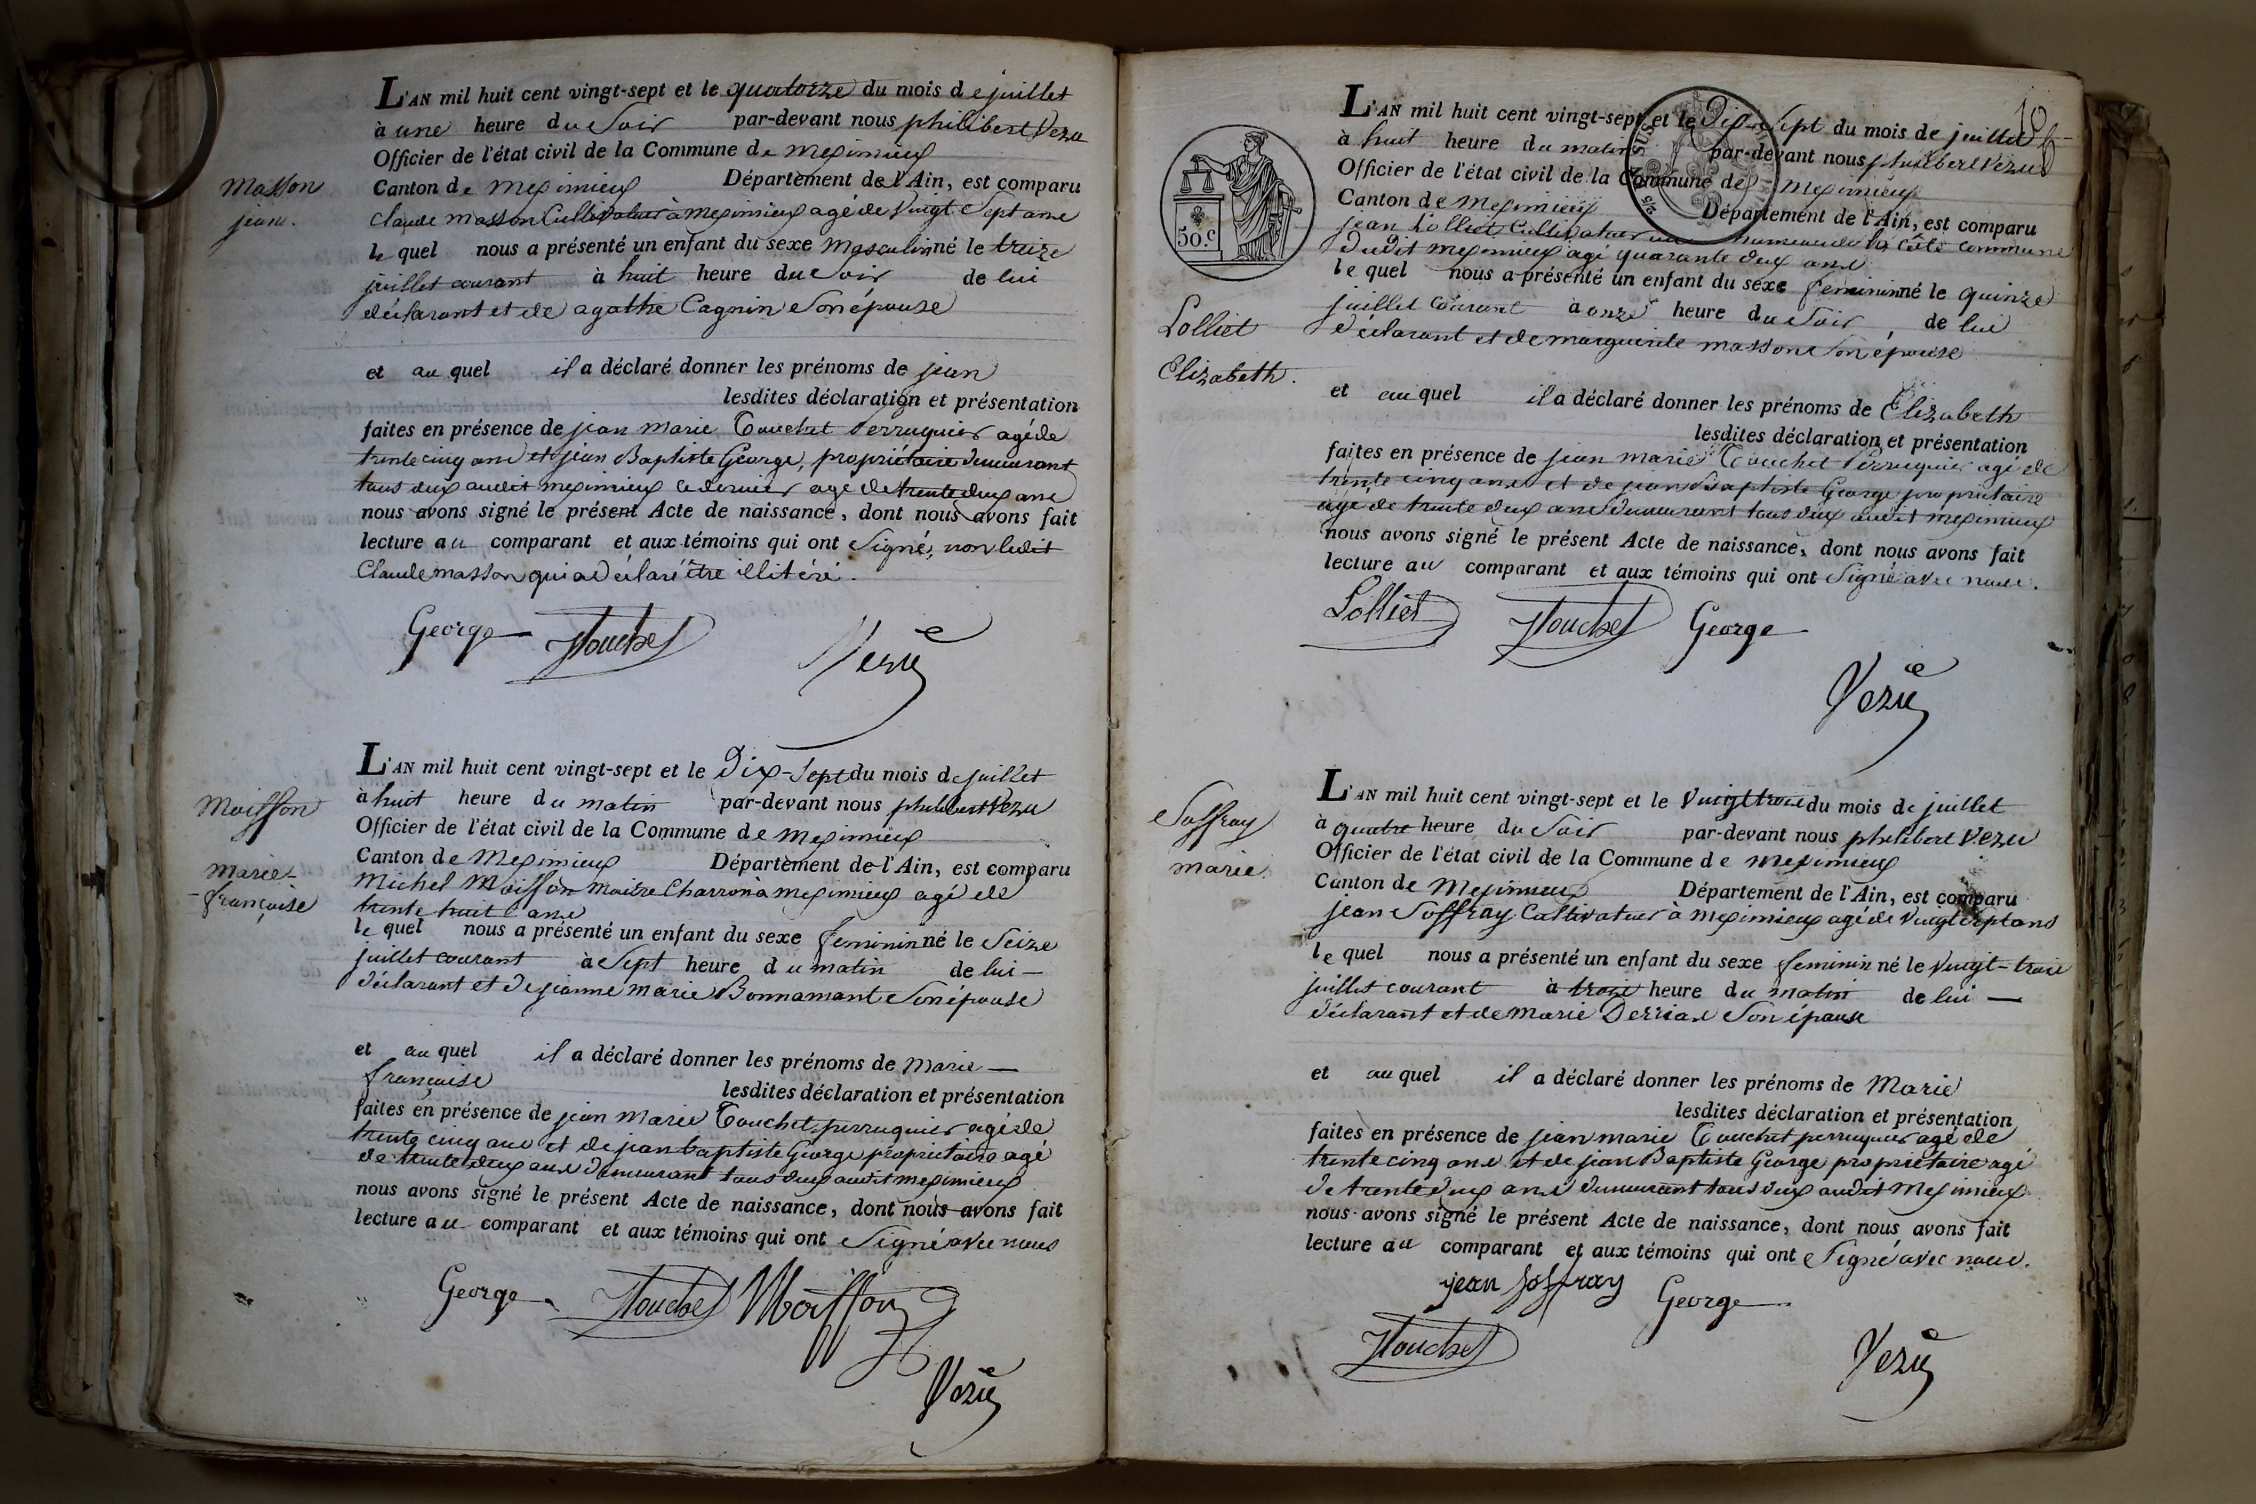 L'AN mil huit cent vingt-sept et le quatorze du mois de juillet
à une heure du Soir par-devant nous philibert Vezu
Officier de l'état civil de la Commune de meximieux
Masson
jean.
Canton de meximieux Département de l'Ain, est comparu
Claude masson Cultivateur à meximieux agé de Vingt Sept ans
le quel nous a présenté un enfant du sexe masculin né le treize
juillet courant à huit heure du Soir de lui
déclarant et de agathe Cagnin Son épouse
et au quel il a déclaré donner les prénoms de jean
lesdites déclaration et présentation
faites en présence de jean marie Touchet Perruquier agé de
trente cinq ans et jean Baptiste George, propriétaire demeurant
tous deux audit meximieux ce dernier agé de trente deux ans
nous avons signé le présent Acte de naissance, dont nous avons fait
lecture au comparant et aux témoins qui ont Signé, non ledit
Claude masson qui a déclaré être illitéré.
George Touchet
Vezu
L'AN mil huit cent vingt-sept et le Dix-Sept du mois de juillet
à huit heure du matin par-devant nous philibert Vezu
Officier de l'état civil de la Commune de meximieux
Moiffon
marie-
françoise
Canton de Meximieux Département de l'Ain, est comparu
Michel Moiffon maitre Charron à meximieux agé de
trente huit ans
le quel nous a présenté un enfant du sexe feminin né le Seize
juillet courant à Sept heure du matin de lui —
déclarant et de jeanne marie Bonnamant Son épouse
et au quel il a déclaré donner les prénoms de Marie —
françoise lesdites déclaration et présentation
faites en présence de jean marie Touchet perruquier agé de
trente cinq ans et de jean baptiste George propriétaire agé
de trente deux ans demeurant tous deux audit meximieux
nous avons signé le présent Acte de naissance, dont nous avons fait
lecture au comparant et aux témoins qui ont Signé avec nous
George Touchet Moiffon
Vezu
L'AN mil huit cent vingt-sept et le Dix-Sept du mois de juillet
à huit heure du matin par-devant nous philibert Vezu
Officier de l'état civil de la Commune de Meximieux
50.C
Canton de Meximieux Département de l'Ain, est comparu
jean Lolliet Cultivateur au hameau de la côte commune
dudit meximieux agé quarante deux ans
le quel nous a présenté un enfant du sexe feminin né le quinze
Lolliet
Elizabeth.
juillet courant à onze heure du Soir, de lui
déclarant et de marguerite masson Son épouse
et au quel il a déclaré donner les prénoms de Elizabeth
lesdites déclaration et présentation
faites en présence de jean marie Touchet Perruquier agé de
trente cinq ans et de jean Baptiste George propriétaire
agé de trente deux ans demeurant tous deux audit meximieux
nous avons signé le présent Acte de naissance, dont nous avons fait
lecture au comparant et aux témoins qui ont Signé avec nous.
Lolliet Touchet George
Vezu
L'AN mil huit cent vingt-sept et le Vingt trois du mois de juillet
à quatre heure du Soir par-devant nous philibert Vezu
Officier de l'état civil de la Commune de Meximieux
Soffray
marie.
Canton de Meximieux Département de l'Ain, est comparu
jean Soffray Cultivateur à meximieux agé de Vingt Sept ans
le quel nous a présenté un enfant du sexe feminin né le Vingt-trois
juillet courant à trois heure du matin de lui —
déclarant et de Marie Son épouse
et au quel il a déclaré donner les prénoms de Marie
lesdites déclaration et présentation
faites en présence de jean marie Touchet perruquier agé de
trente cinq ans et de jean Baptiste George propriétaire agé
de trente deux ans demeurant tous deux audit Meximieux
nous avons signé le présent Acte de naissance, dont nous avons fait
lecture au comparant et aux témoins qui ont Signé avec nous.
jean Soffray George
Touchet
Vezu